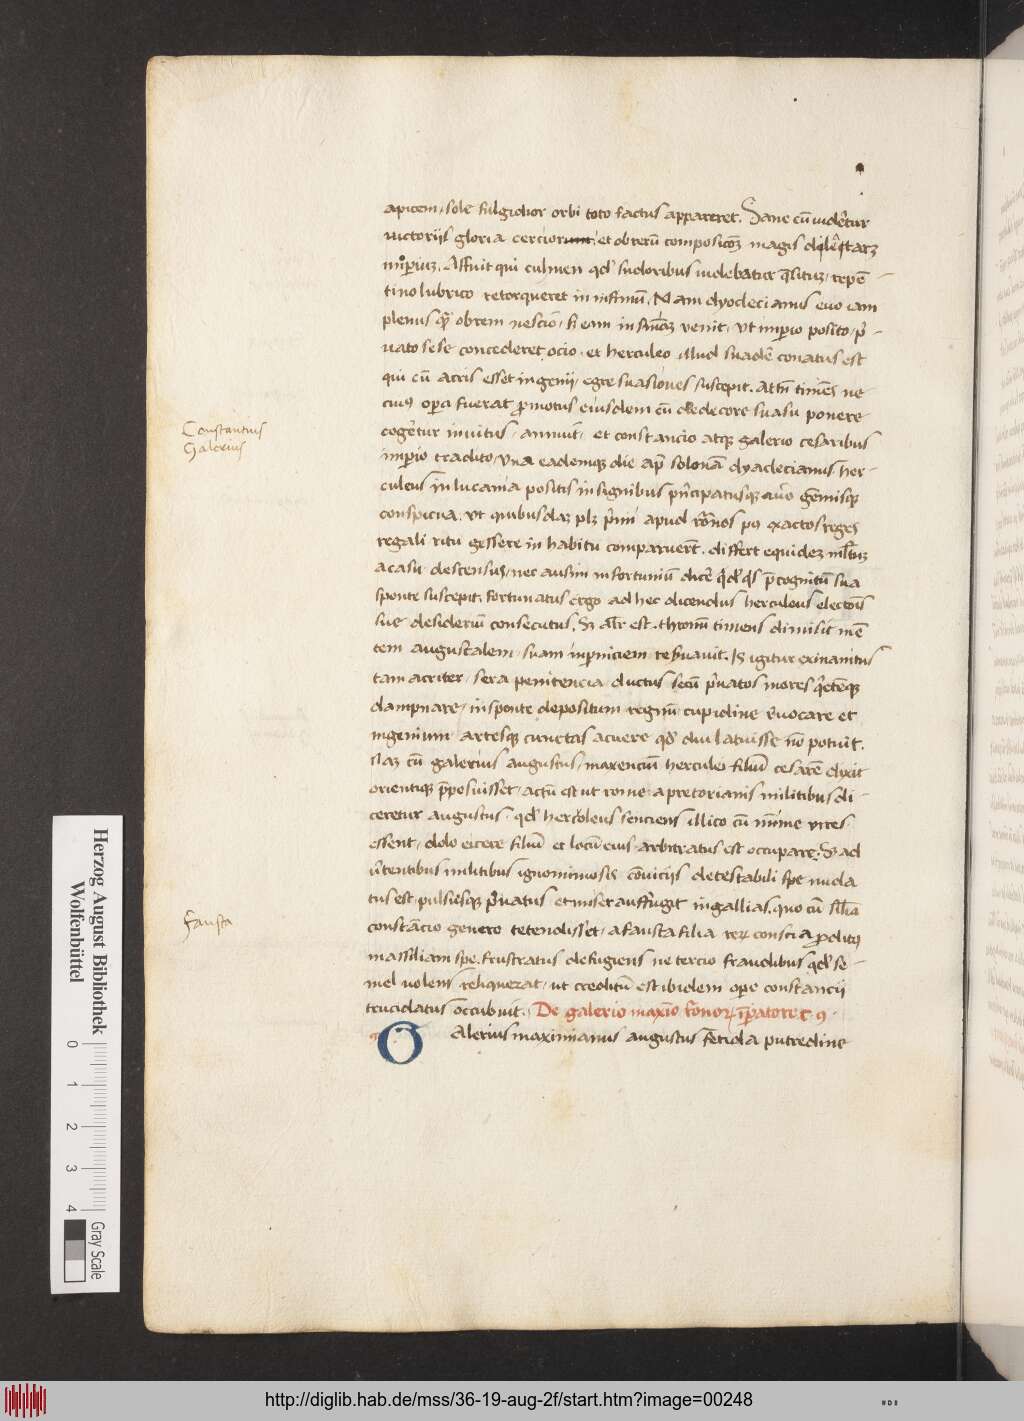 apicem, sole fulgidior orbi toto factus appareret. Sane cū uidēretur
uictoriis gloria cerciorum et obrerū composicōȝ magis
imperiuȝ. Affuit qui culmen qd' sudoribus uidebatur q̄situȝ, repē-
tino lubrico retorqueret in infimū, Nam dyoclecianus euo iam
plenus obrem nescio, si eam in venit, vt impio posito, p̄-
uato sese concederet ocio, et herculeo illud suadē conatus est
qui cū acris esset ingenij, egre suasiones suscepit. Attn̄ timēs ne
cuiꝰ opa fuerat pmotus eiusdem cū dedecore suasu ponere
Constantius
Galerius
cogētur inuitus, annuit, et constancio atqȝ galerio cesaribus
impio tradito, vna eademqȝ die ap̄ solonā dyaclecianus her-
culeus in lucania positis insignibus pn̄cipatusqȝ euo gēmisqȝ
conspicua, vt quibusdaȝ plȝ apud rōnos pꝰ exactos reges
regali ritu gessere in habitu comparuerūt. differt equideȝ mltuȝ
a casu descensus, nec ausim infortuniū dicē qd' qs p̄cognitū sua
sponte suscepit, fortunatus ergo ad hec dicendus herculeus electōis
sue desideriū consecutus, Sȝ alr est. thronū timens dimisit mē
tem augustalem, suam in perniciem reseruauit. Is igitur exinanitus
tam acriter, sera penitencia ductus secū pꝛuatos mores q̄etēqȝ
dampnare, in sponte depositum regnū cupidine reuocare et
ingenium artesqȝ cunctas acuere qd' diu latuisse nō potuit.
Naȝ cū galerius augustus, maxenciū herculei filiū cesarē dixit
orientiqȝ p̄posuisset, actū est ut rome a pretorianis militibus di
ceretur augustus, qd' herculeus senciens illico cū mīnime vires
essent, dolo eicere filiū et locū eius arbitratus est occupare. Sȝ ad
uertentibus militibus ignominiosis cōuiciis detestabili spe nuda
tus est, pulsusqȝ pꝛuatus et miser auffugit in gallias, quo cū
Fausta
constācio genero tetendisset, a fausta filia rerȝ conscia pditꝰ
massiliam spe frustratus defugiens ne tercio fraudibus qd' se-
mel uolens reliquerat, ut creditū est ibidem ope constancii
trucidatus occubuit. De galerio maxīo īperatore. c. 9.
Galerius maximianus augustus fetida putredine
Herzog August Bibliothek
Wolfenbüttel
0 1 2 3 4
Gray Scale
http://diglib.hab.de/mss/36-19-aug-2f/start.htm?image=00248